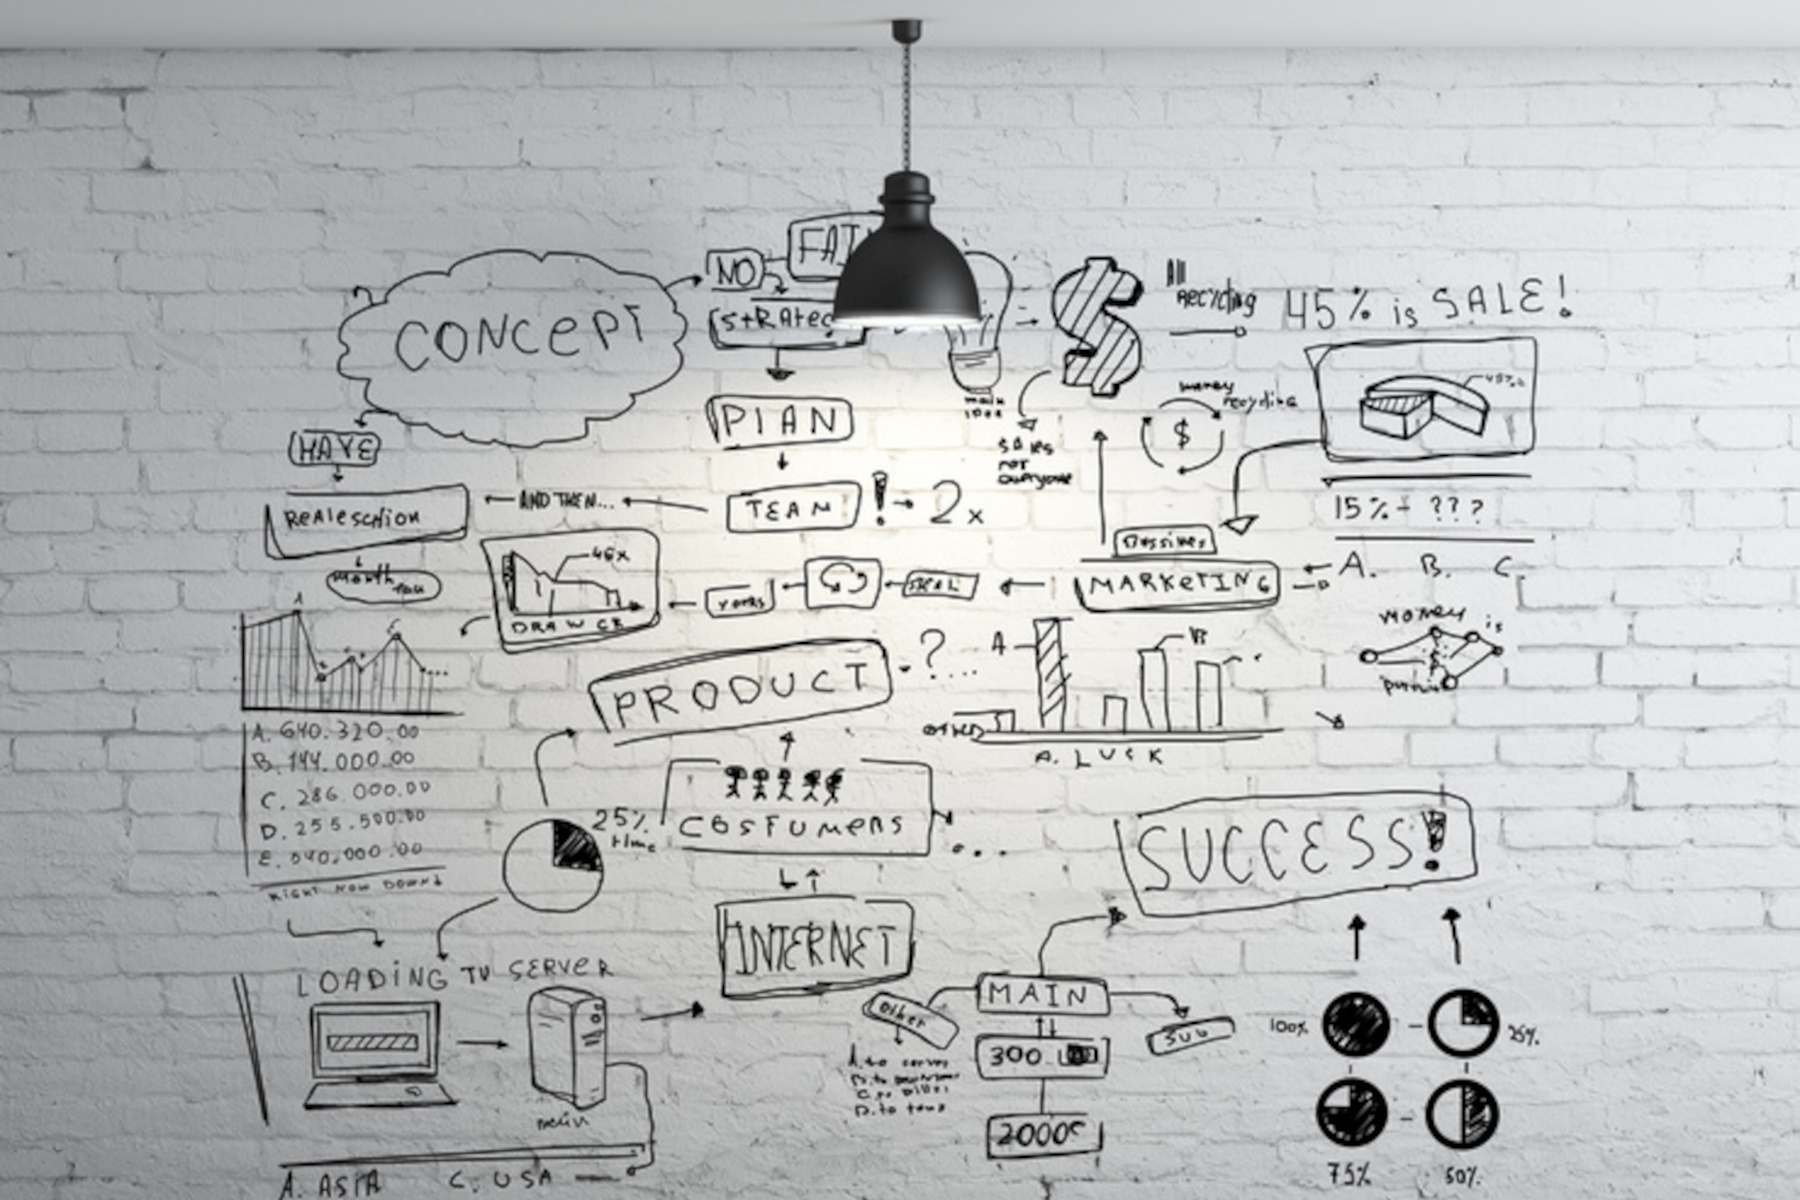 CONCEPT
NO
FAI
StRAteg
All
Recycling
45% is SALE!
main
idea
money
recycling
$
HAVE
PLAN
Sales
not
everyone
ReAlesction
AND THEN...
TEAM ! 2x
15% - ???
month
46x
DRAW
MARKETING
A. B. C.
PRODUCT ?
A
B
money is
others
A. LUCK
A. 640.320.00
B. 144.000.00
C. 286.000.00
D. 255.500.00
E. 040.000.00
RIGHT NOW DOWN
25%
time
COSTUMERS
SUCCESS!
INTERNET
LOADING TU SERVER
MAIN
Other
SUB
300.
2000
A. to server
D. to
100%
25%
75%
50%
A. ASIA C. USA